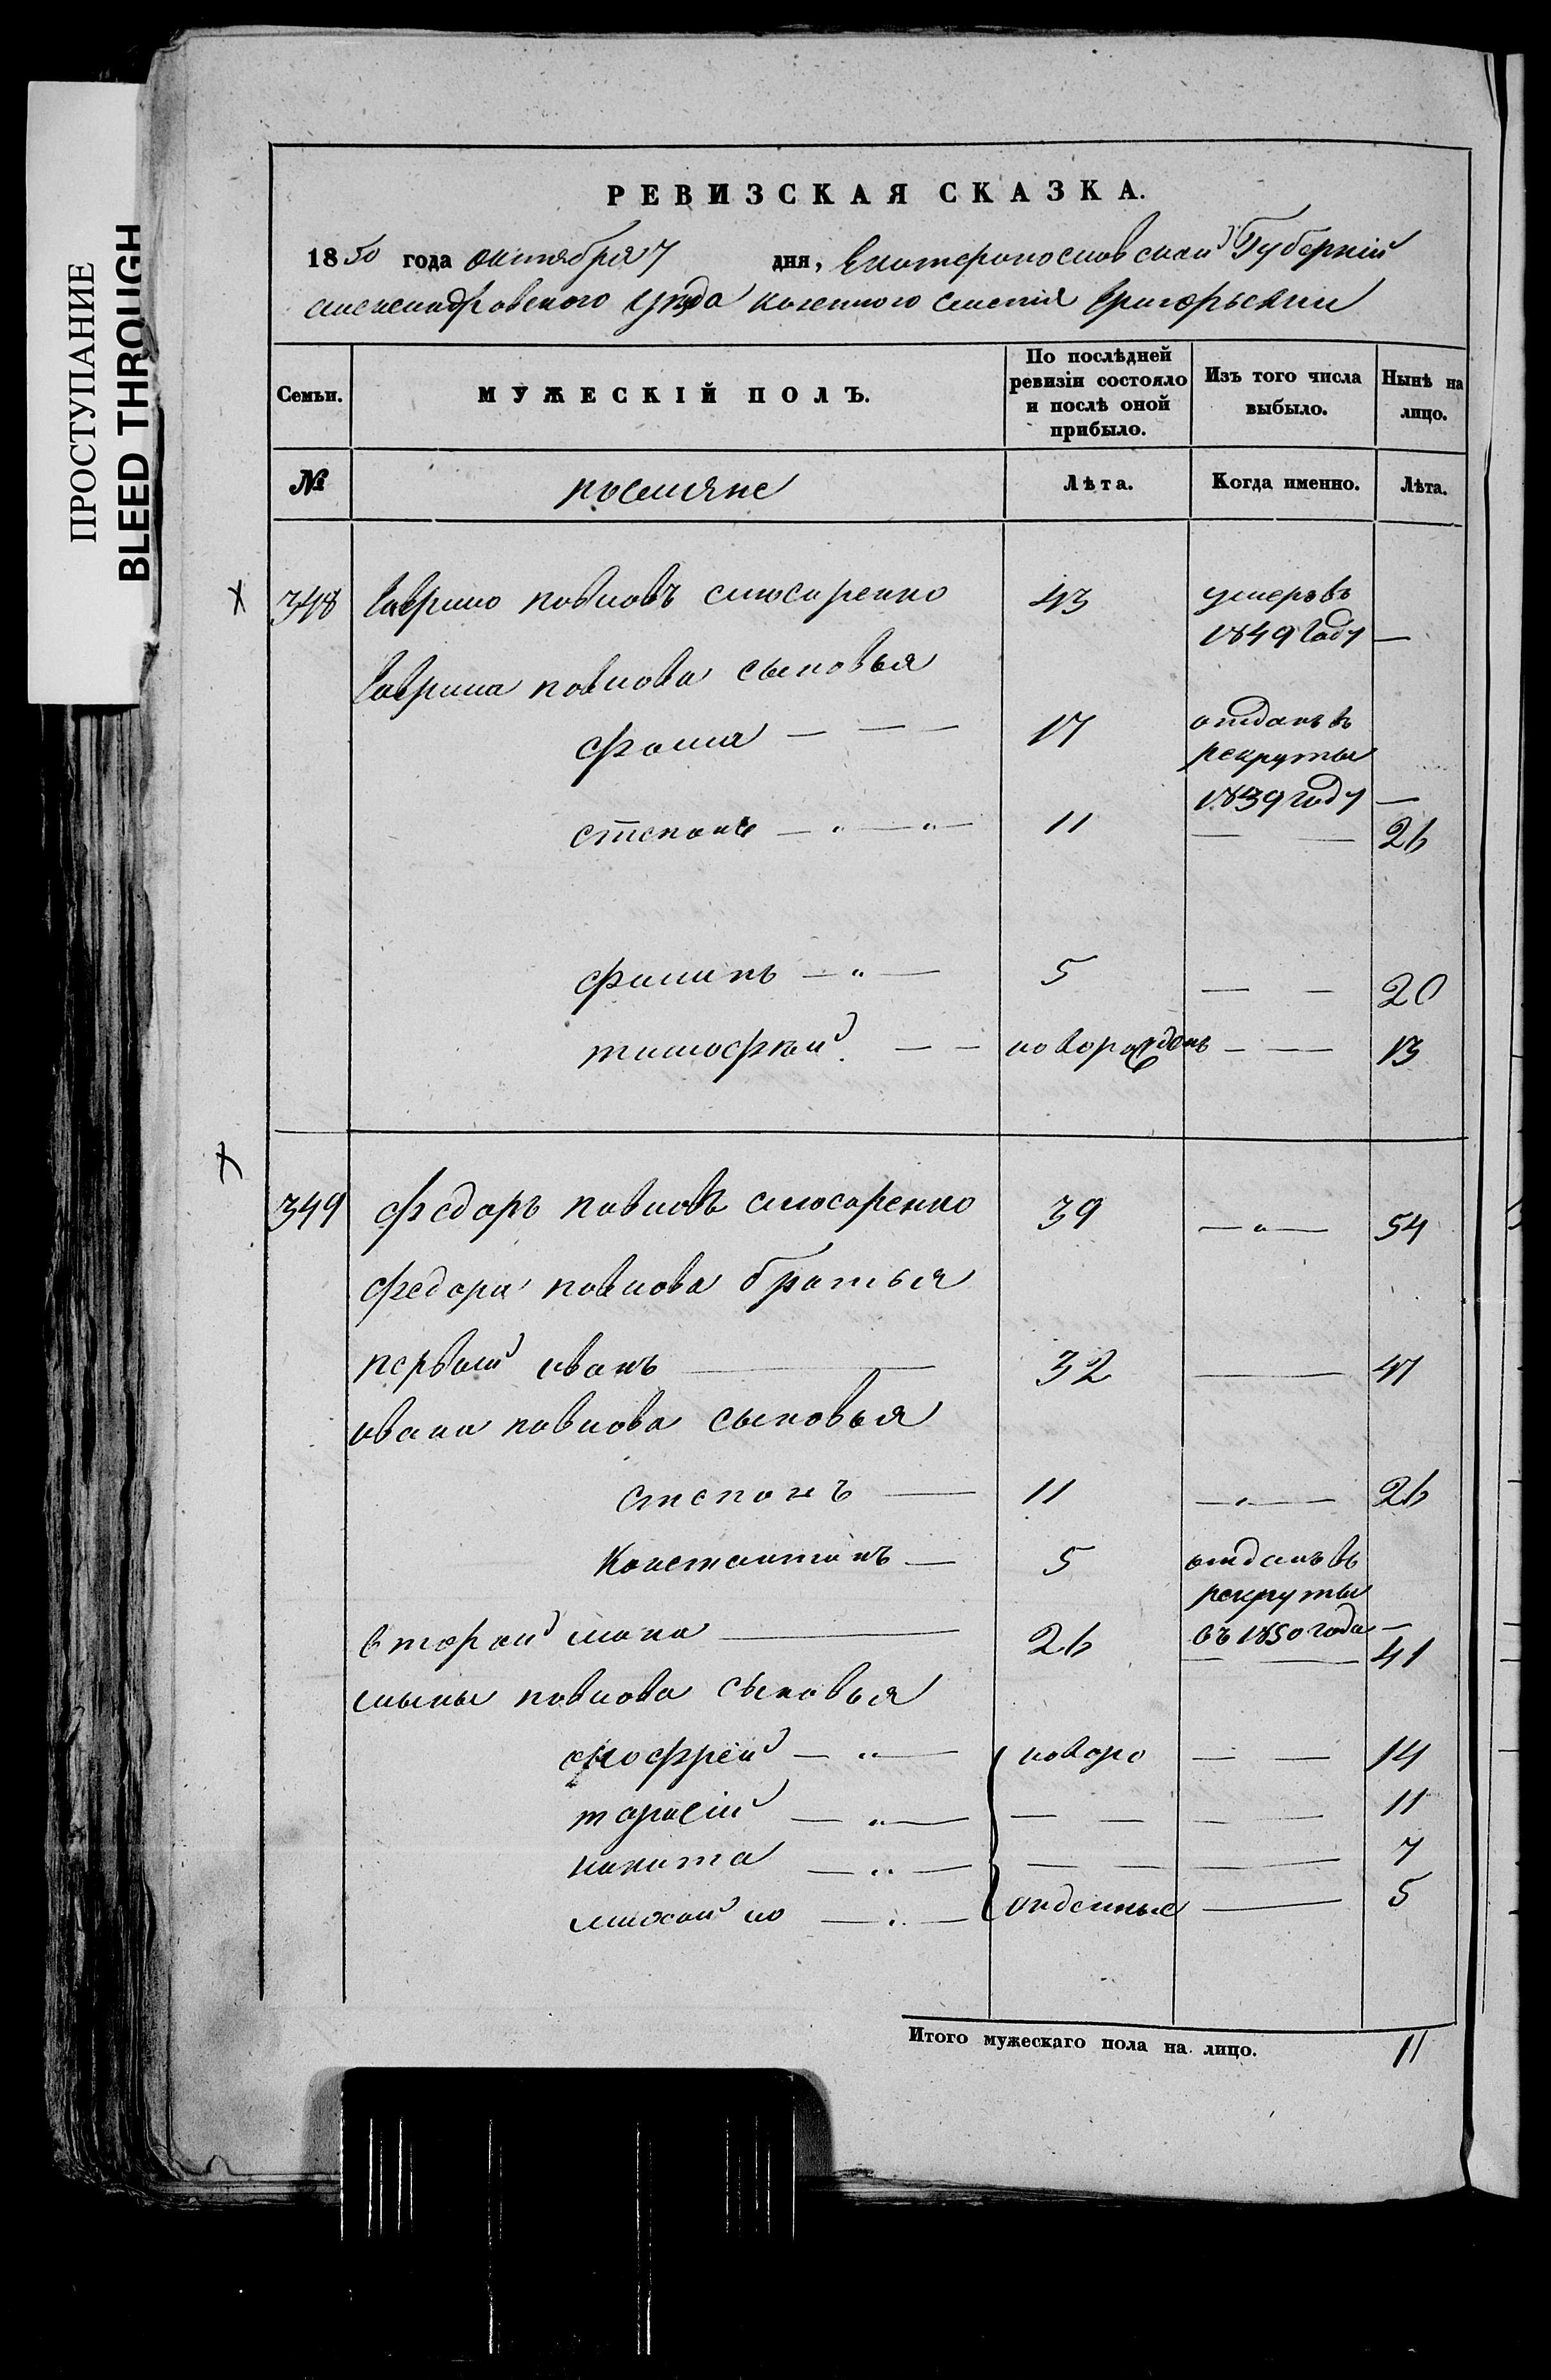 ПРОСТУПАНИЕ
BLEED THROUGH
РЕВИЗСКАЯ СКАЗКА.
1850 года октября 7 дня, Екатеринославской Губерніи
александровского уезда казенного селенія Григорьевки
Семьи. МУЖЕСКІЙ ПОЛЪ. По послѣдней ревизіи состояло и послѣ оной прибыло. Изъ того числа выбыло. Нынѣ на лицо.
№ поселяне Лѣта. Когда именно. Лѣта.
348 Гаврило павловъ слюсаренко 43 умеръ въ
1849 году —
Гаврила павлова сыновья
фома — — 17 отданъ въ
рекруты
1839 году —
степанъ — " — " — 11 — — 26
филипъ — " — 5 — — 20
тимофей — — новорожденъ — — 13
349 федоръ павловъ слюсаренко 39 — " — 54
федора павлова братья
первый иванъ — 32 — 47
ивана павлова сыновья
степанъ — 11 — " — 26
Константинъ — 5 отданъ въ
рекруты
въ 1850 года —
второй илья — 26 — — 41
ильи павлова сыновья
онофрей — " — новоро — — 14
тарасій — " — — — — — 11
никита — " — — — — 7
михайло — " — жденные — 5
Итого мужескаго пола на лицо. 11